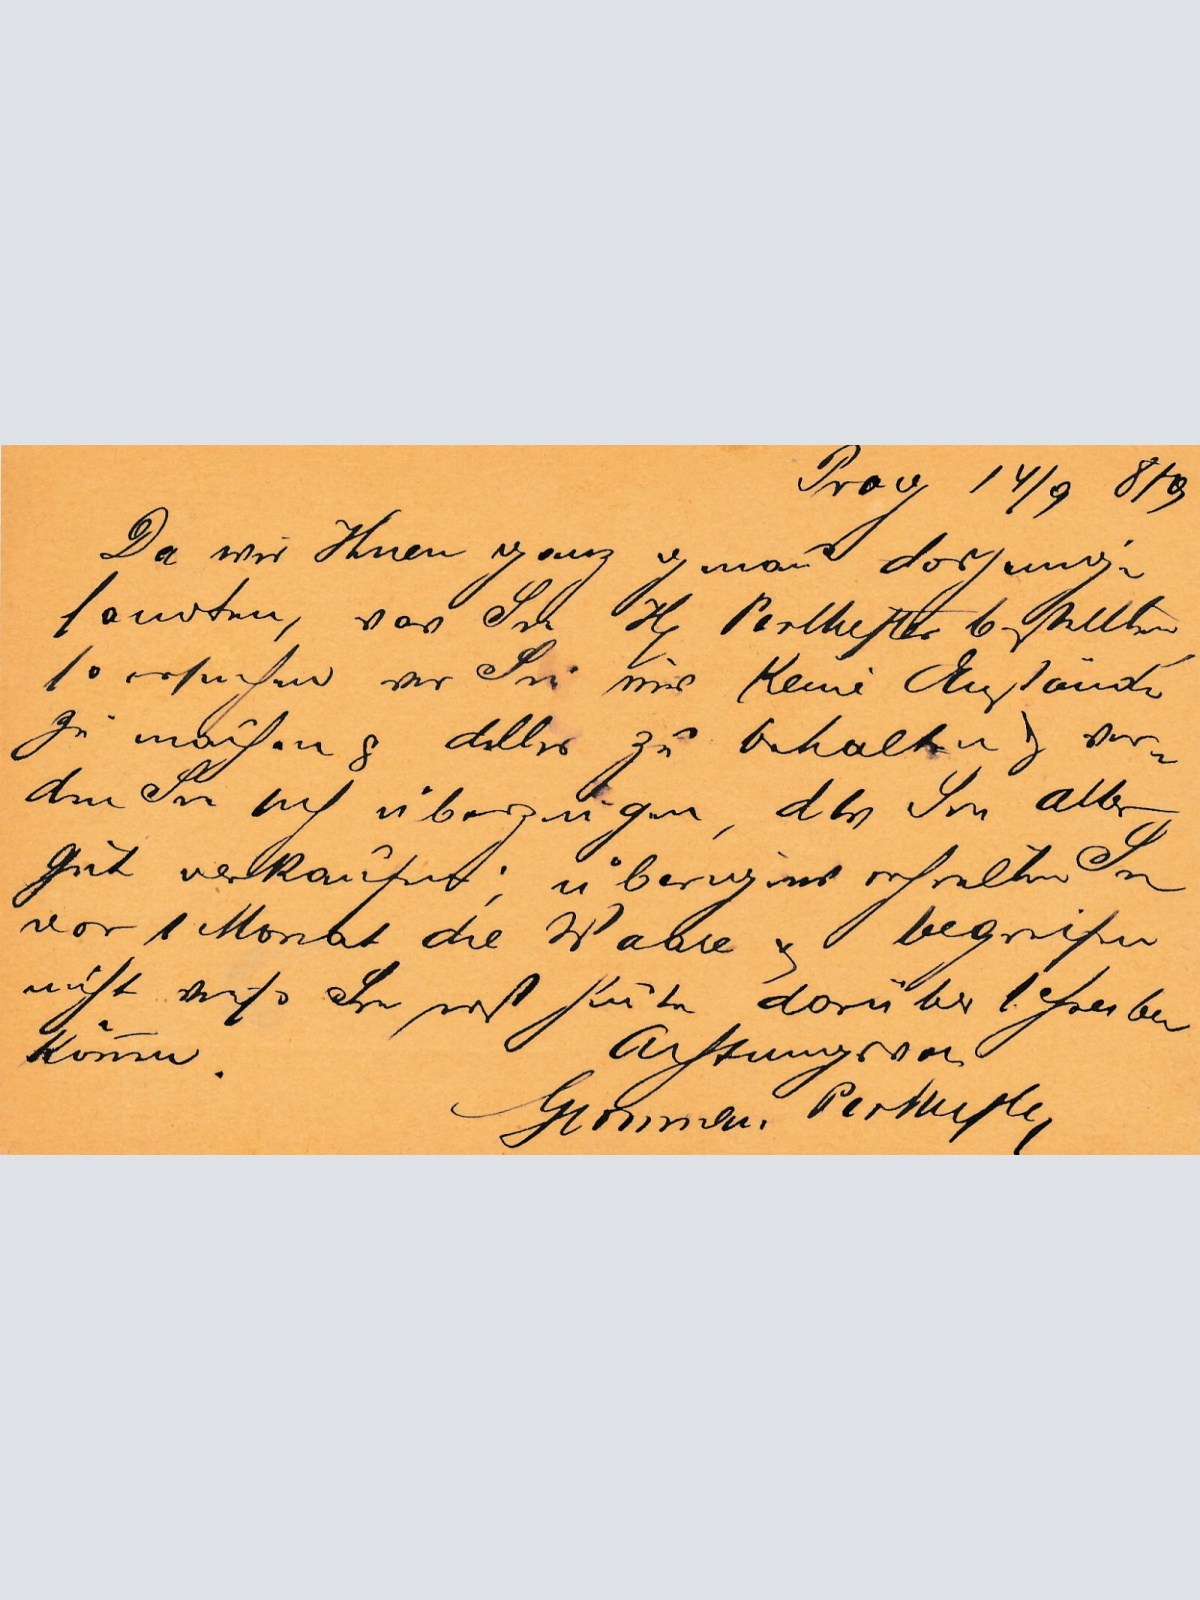 Prag 14/9 89
Da wir Ihnen ganz genau dasjenige
sandten, was Sie H. Perlhefter bestellten
so ersuchen wir Sie mir keine Anstände
zu machen & selbe zu behalten & wer-
den Sie sich überzeugen, daß Sie alles
gut verkaufen; übrigens erhielten Sie
vor 1 Monat die Waare & begreifen
nicht wieso Sie erst heute darüber schreiben
können.
Achtungsvoll
Perlhefter